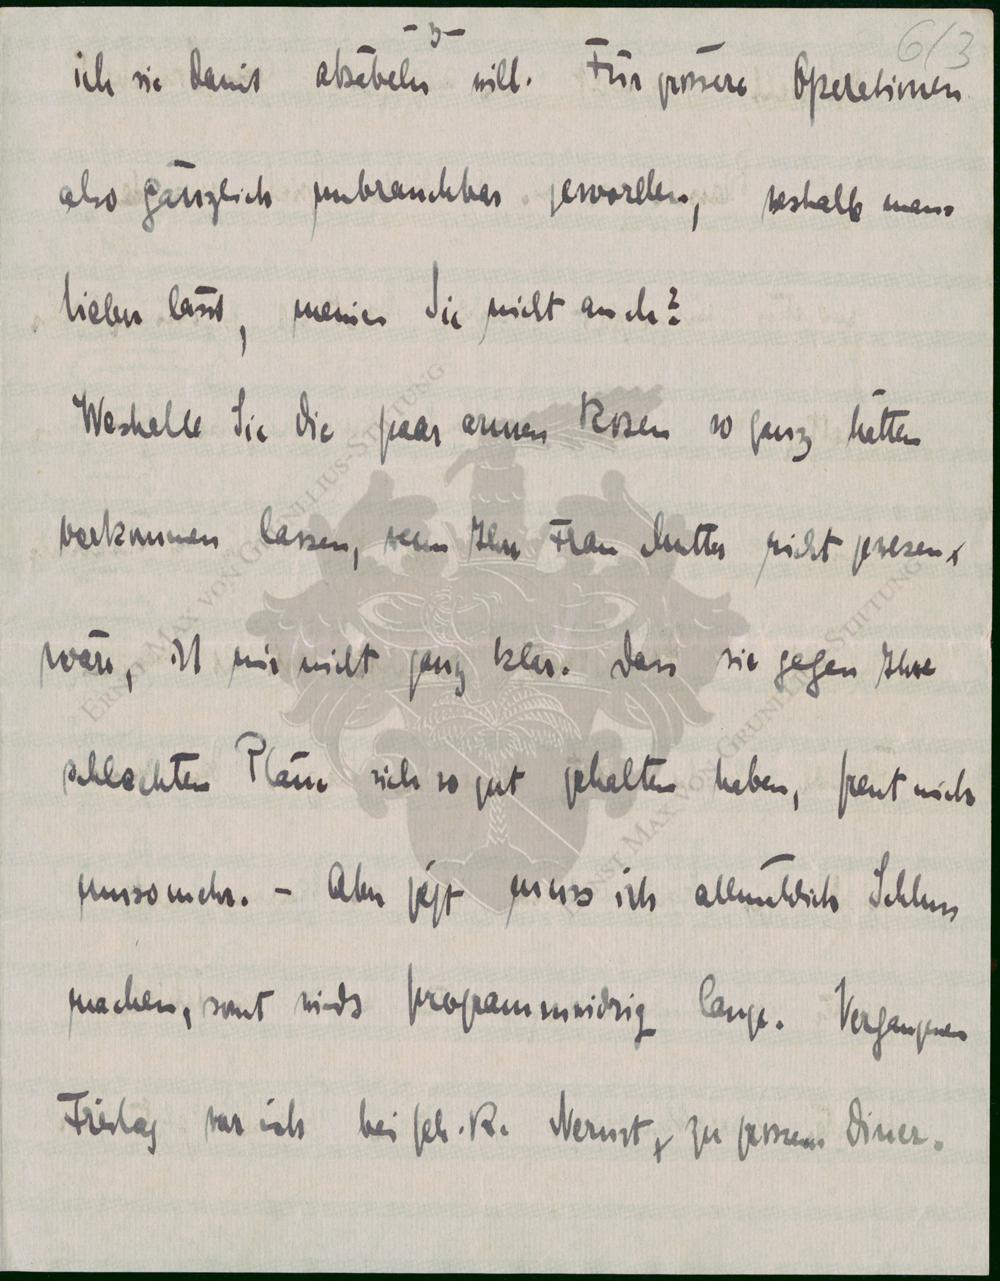 -3-
6/3
ich sie damit absäbeln will. Für grössere Operationen
also gänzlich unbrauchbar geworden, weshalb mans
lieber lässt, meinen Sie nicht auch?
Weshalb Sie die paar armen Rosen so ganz hätten
verkommen lassen, wenn Ihre Frau Mutter nicht gewesen
wäre, ist mir nicht ganz klar. Dass sie gegen Ihre
schlechten Pläne sich so gut gehalten haben, freut mich
umsomehr. - Aber jetzt muss ich allmählich Schluss
machen, sonst wirds programmwidrig lange. Vergangenen
Freitag war ich bei Geh. R. Nernst, zu grossem Diner.
ERNST MAX VON GRUNELIUS-STIFTUNG
ERNST MAX VON GRUNELIUS-STIFTUNG